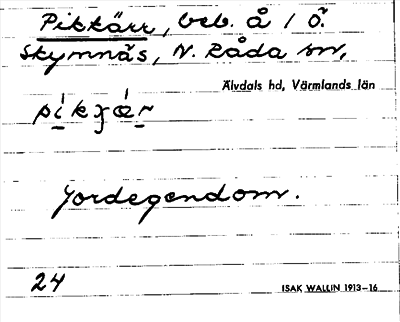 Pikkärr, beb. å 1 Ö.
Skymnäs, N. Råda sn,
Älvdals hd, Värmlands län
Jordegendom.
24
ISAK WALLIN 1913–16